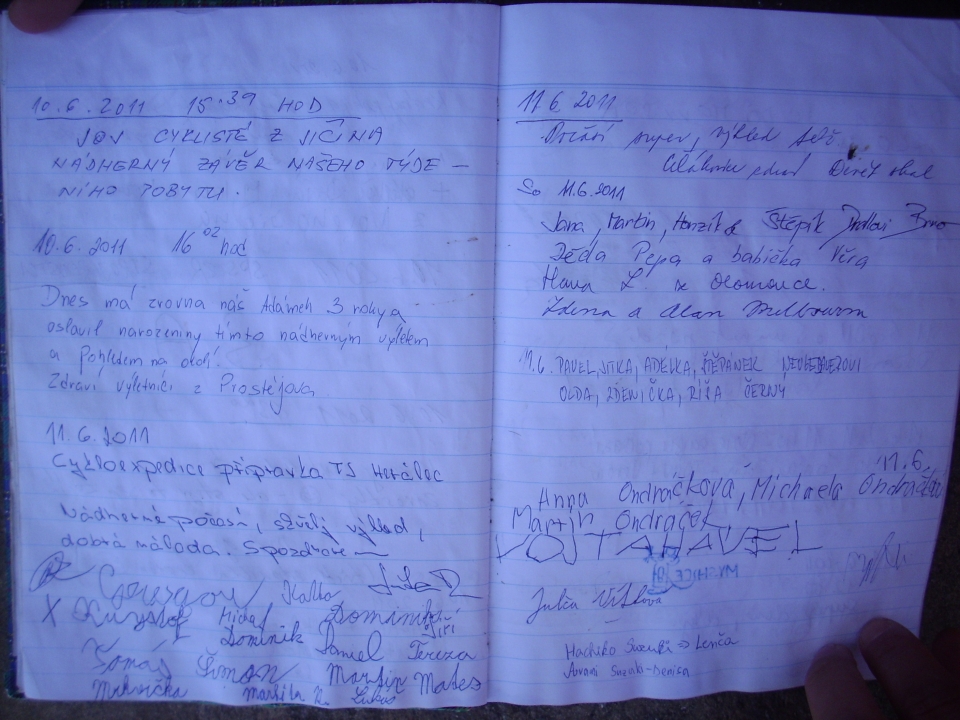 10.6.2011 15.39 HOD
JOJ CYKLISTÉ Z JIČÍNA
NÁDHERNÝ ZÁVĚR NAŠEHO TÝDE-
NÍHO POBYTU.
10.6.2011 16 02 hod
Dnes má zrovna náš Adámek 3 roky a
oslavil narozeniny tímto nádherným výletem
a Pohledem na okolí.
Zdraví výletníci z Prostějova
11.6.2011
Cykloexpedice přípravka TS Herálec
Nádherné počasí, skvělý výhled,
dobrá nálada. S pozdravem
Katka
X Krysstof Dominika
Jiří
Dominik Daniel Tereza
Tomáš Šimon Martin Mates
Markéta K. Lukáš
11.6.2011
Počasí super, výhled
So 11.6.2011
Jana, Martin, Honzík & Štěpík Brno
Děda Pepa a babička Věra
Hana L. z Olomouce.
Zdena a Alan Melbourn
11.6. PAVEL, JITKA, ADÉLKA, ŠTĚPÁNEK
OLDA, ZDENIČKA, RÍŠA ČERNÝ
11.6.
Anna Ondráčková, Michaela Ondráčková
Martin Ondráček
VOJTA HAVEL
Hachiko Suzuki → Lenča